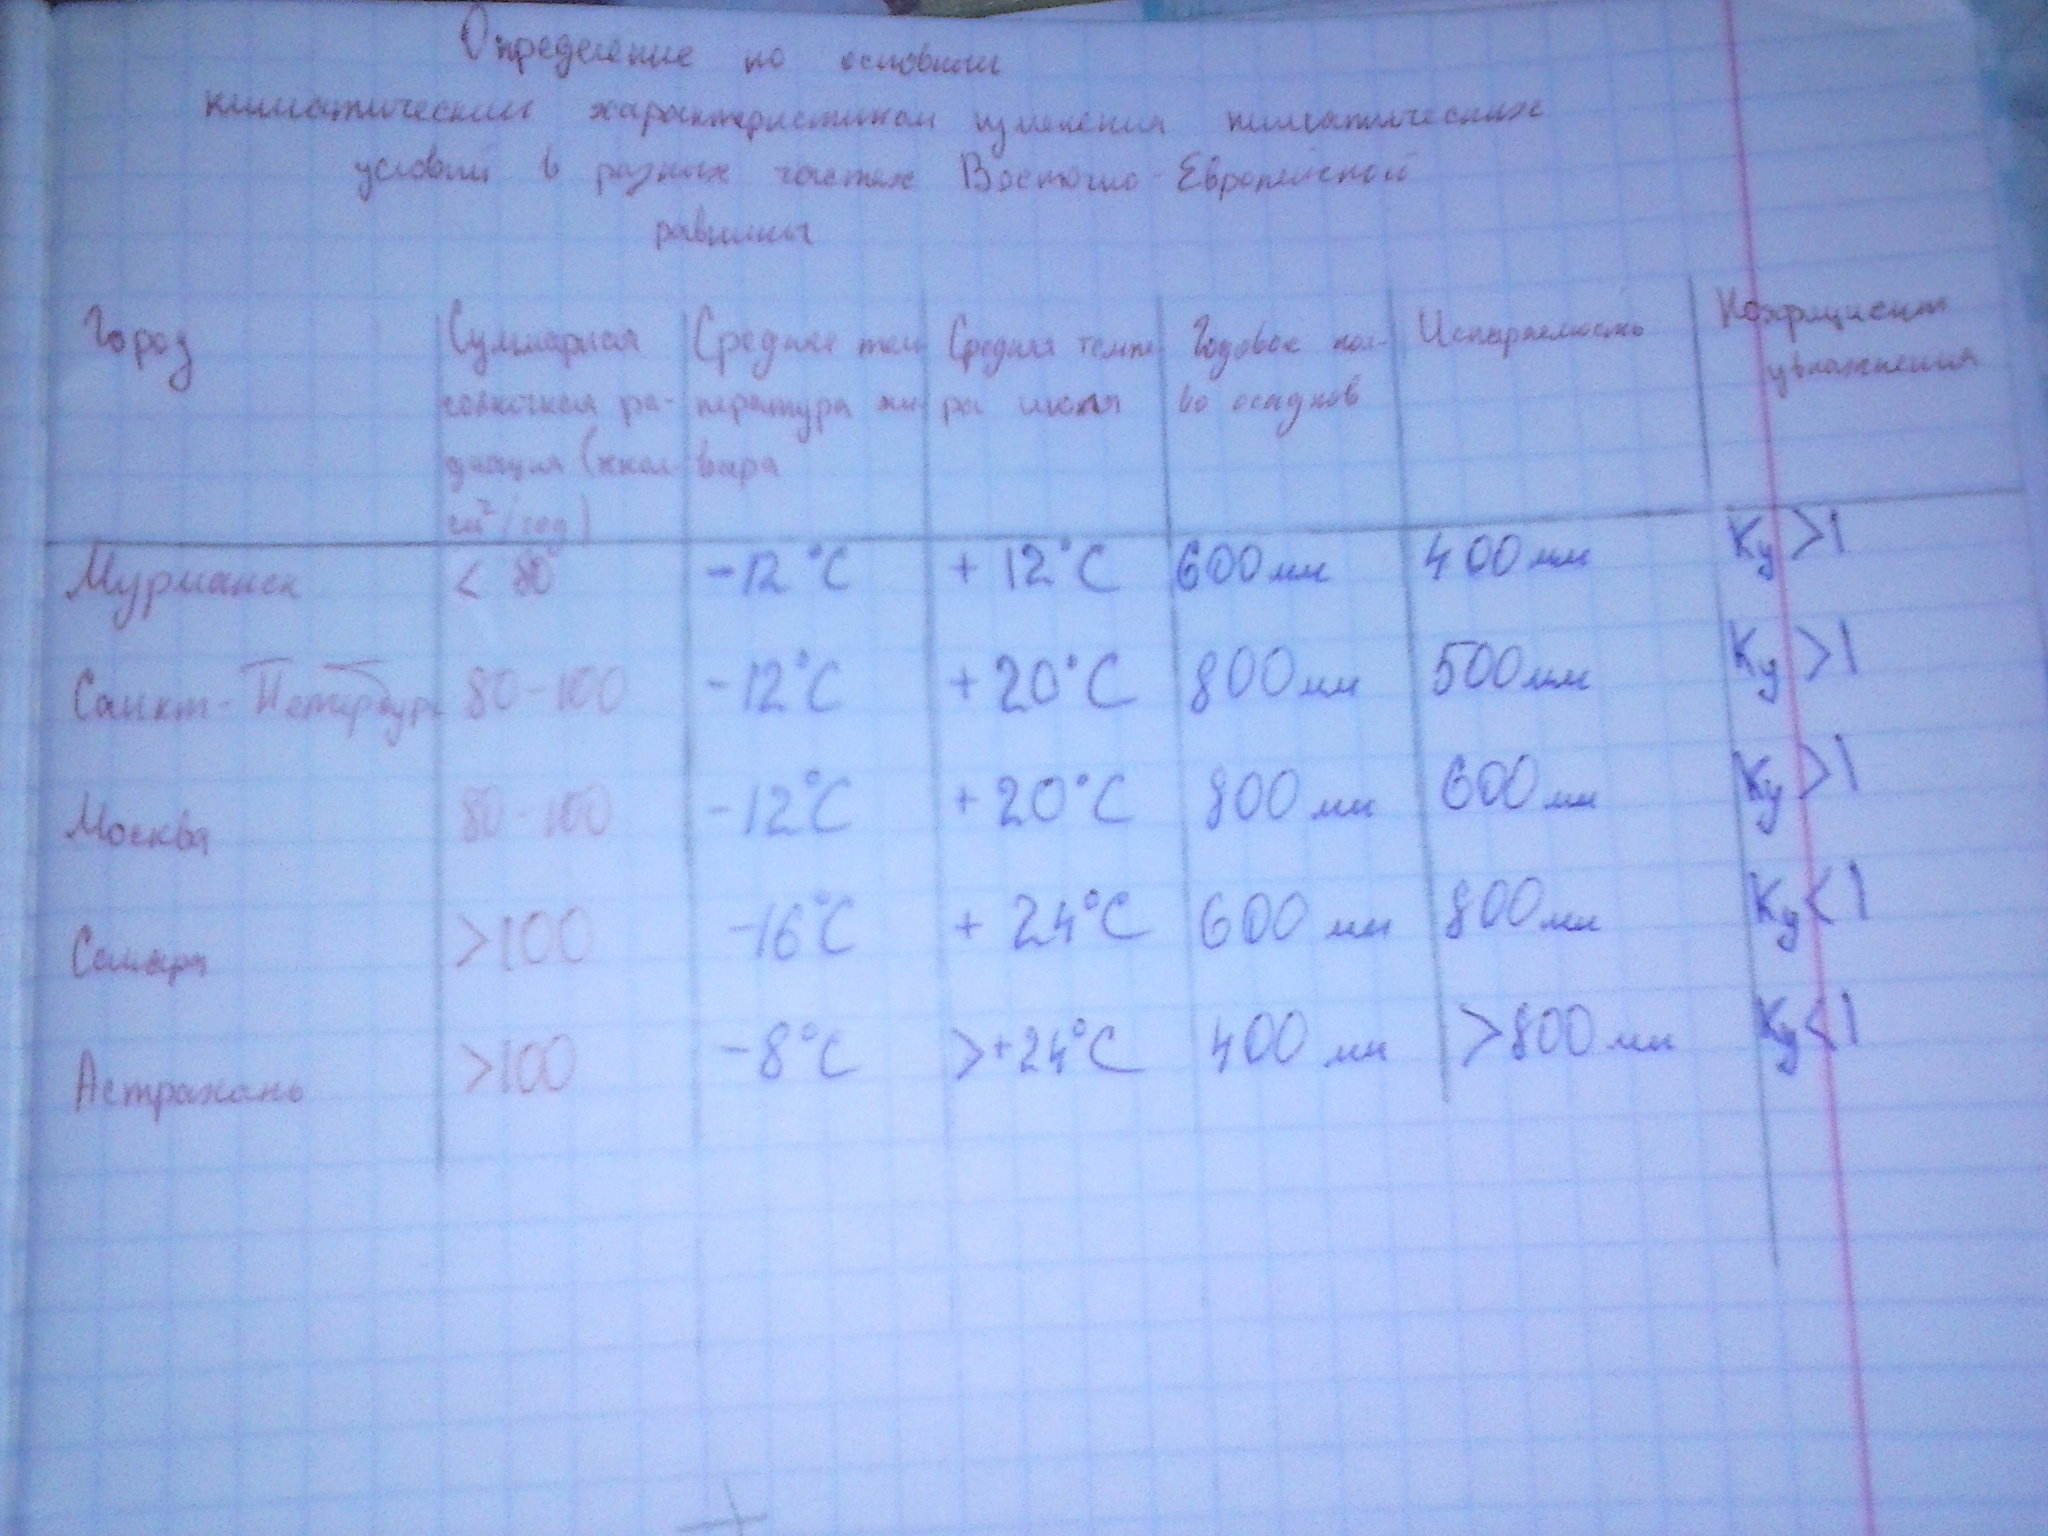 Определение по основным
климатическим характеристикам изменения климатических
условий в разных частях Восточно-Европейской
равнины
Город
Суммарная
солнечная ра-
диация (ккал.
см²/год)
Средняя тем-
пература ян-
варя
Средняя темпе
ра июля
Годовое кол-
во осадков
Испаряемость
Коэфициент
увлажнения
Мурманск < 80 -12°C + 12°C 600 мм 400 мм Ку >1
Санкт-Петербург 80-100 -12°C +20°C 800 мм 500 мм Ку >1
Москва 80-100 -12°C +20°C 800 мм 600 мм Ку >1
Самара >100 -16°C + 24°C 600 мм 800 мм Ку < 1
Астрахань >100 -8°C >+24°C 400 мм >800 мм Ку < 1